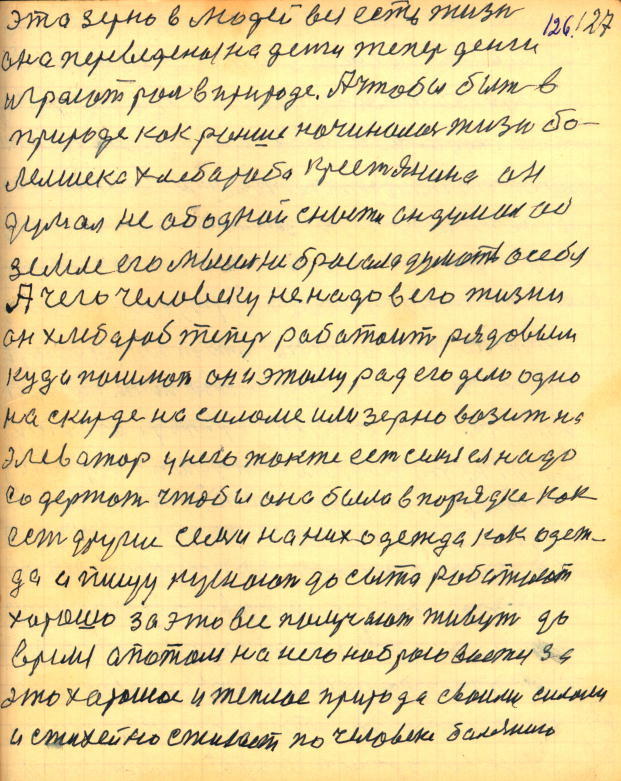 эта зерно в людей вся есть жизн 126. 127
она переведены на денги тепер денги
играют рол в природе. А чтобы быт в
природе как раньше начиналась жизн бо-
лелшека хлебароба крестянина он
думал не ободной сыноти он думал об
земле его мысля не бросала думать о себя
А чего человеку не надо в его жизни
он хлебароб тепер работаит рядовым
куда пошлют он и этому рад его дело одно
на скирде на саломе или зерно возит на
элеватор у него токже ест семя ея надо
содержат чтобы она была в порядке как
ест други семи на них одежда как одеж-
да а пищу кушают до сыта работают
харошо за это все получают живут до
время а потом на него набрасовается за
это харошое и теплое природа своими силами
и стихейно сживает по человеке балячило